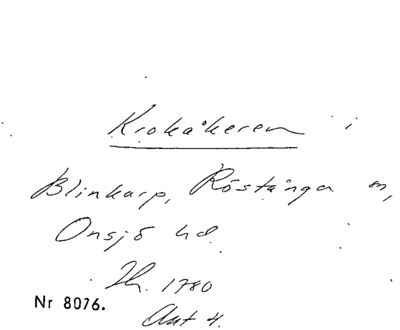 Krokåkeren i
Blinkarp, Röstånga sn,
Onsjö hd.
Th. 1780
Nr 8076.
Akt 4.